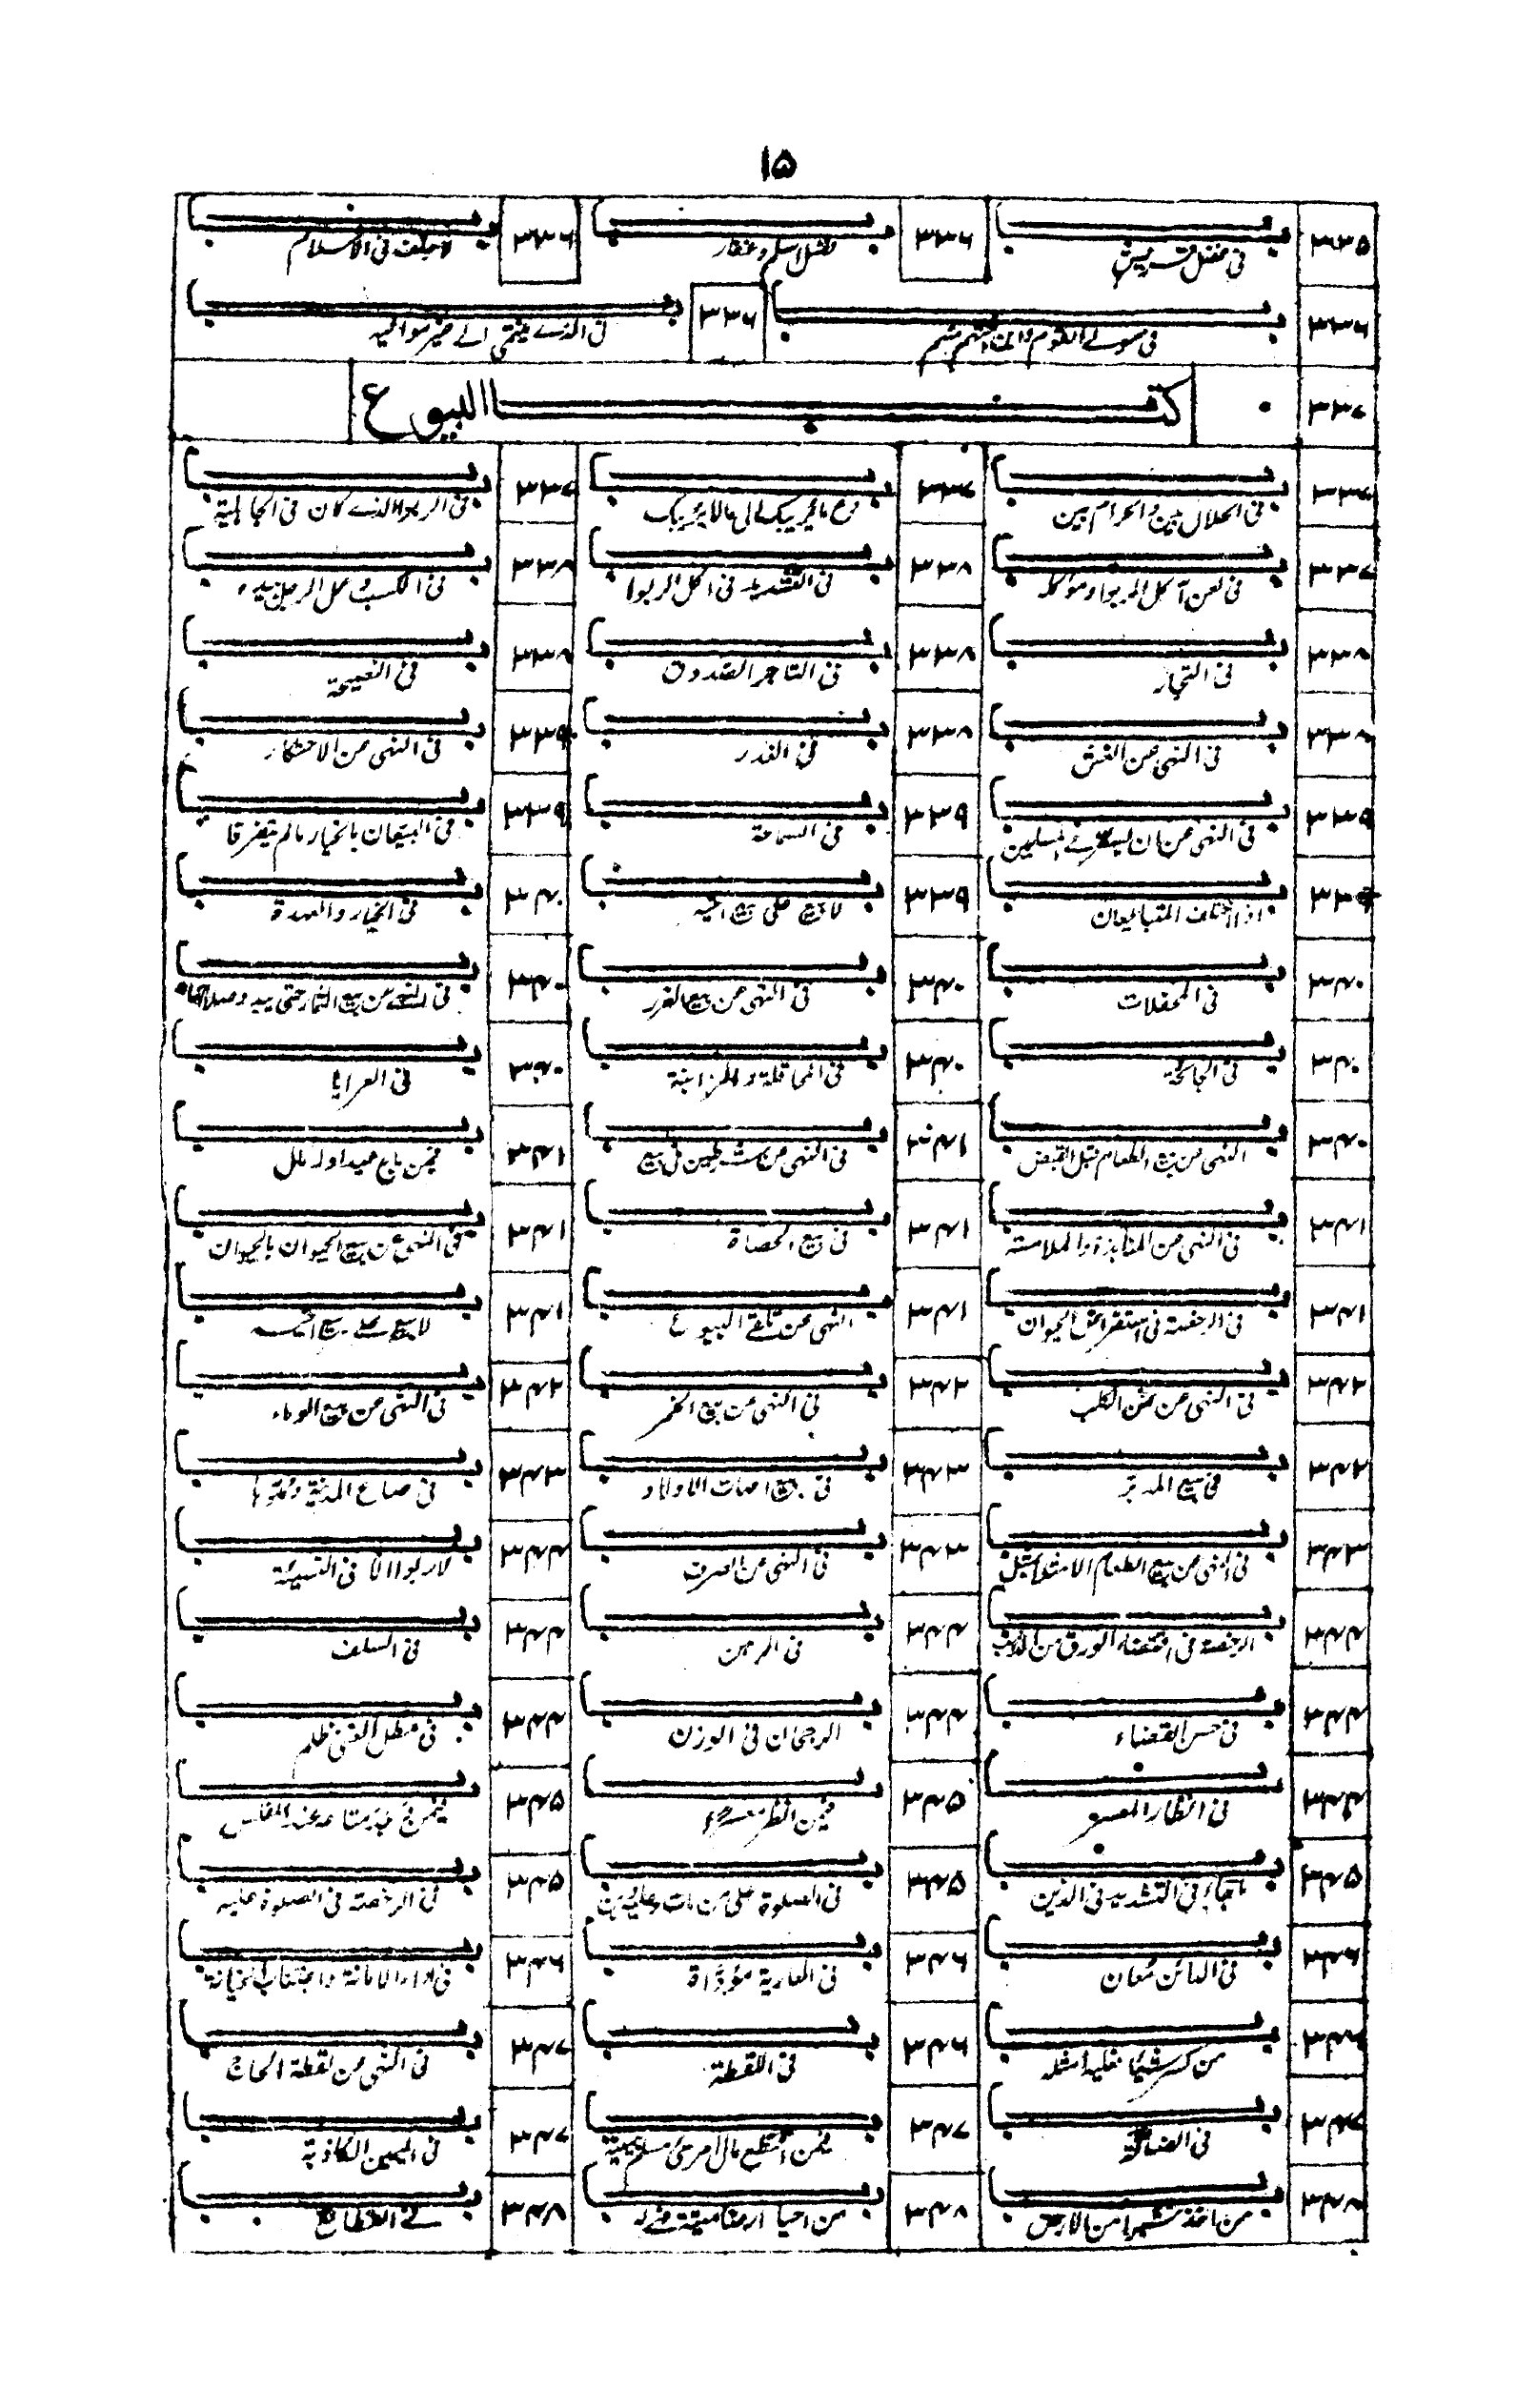 ۱۵
۳۳۵ باب فی فضل قریش ۳۳۶ باب فضل اسلم وغفار ۳۳۶ باب لا حلف فی الاسلام
۳۳۶ باب فی مولے القوم وابن اختهم منهم ۳۳۶ باب فی الذے ینتمی الے غیر موالیه
۳۳۷ کتاب البیوع
۳۳۷ باب فی الحلال بین والحرام بین ۳۳۷ باب دع ما یریبک الی ما لا یریبک ۳۳۷ باب فی الربوا الذے کان فی الجاهلیة
۳۳۷ باب فی لعن آکل الربوا وموکله ۳۳۸ باب فی التشدید فی اکل الربوا ۳۳۸ باب فی الکسب وعمل الرجل بیده
۳۳۸ باب فی التجار ۳۳۸ باب فی التاجر الصدوق ۳۳۸ باب فی النصیحة
۳۳۸ باب فی النهی عن الغش ۳۳۸ باب فی الغدر ۳۳۹ باب فی النهی عن الاحتکار
۳۳۹ باب فی النهی عن ان المسلمین ۳۳۹ باب فی السماحة ۳۳۹ باب فی البیعان بالخیار مالم یتفرقا
۳۳۹ باب اذا اختلف المتبایعان ۳۳۹ باب لا یبیع علی بیع اخیه ۳۴۰ باب فی الخیار والعهدة
۳۴۰ باب فی المحفلات ۳۴۰ باب فی النهی عن بیع الغرر ۳۴۰ باب فی النهے عن بیع الثمار حتی یبدو صلاحها
۳۴۰ باب فی الجائحة ۳۴۰ باب فی المحاقلة والمزابنة ۳۴۰ باب فی العرایا
۳۴۰ باب النهی عن بیع الطعام قبل القبض ۳۴۱ باب فی النهی عن شرطین فی بیع ۳۴۱ باب فیمن باع عبدا وله مال
۳۴۱ باب فی النهی عن المنابذة والملامسة ۳۴۱ باب فی بیع الحصاة ۳۴۱ باب فی النهی عن بیع الحیوان بالحیوان
۳۴۱ باب فی الرخصة فی استقراض الحیوان ۳۴۱ باب النهی عن تلقے البیوع ۳۴۱ باب لا یبیع علے بیع اخیه
۳۴۲ باب فی النهی عن ثمن الکلب ۳۴۲ باب فی النهی عن بیع الخمر ۳۴۲ باب فی النهی عن بیع الولاء
۳۴۲ باب فی بیع المدبر ۳۴۳ باب فی بیع امهات الاولاد ۳۴۳ باب فی صاع المدینة ومدها
۳۴۳ باب فی النهی عن بیع الطعام الا مثلا بمثل ۳۴۳ باب فی النهی عن الصرف ۳۴۴ باب لا ربوا الا فی النسیئة
۳۴۴ باب الرخصة فی اقتضاء الورق من الذهب ۳۴۴ باب فی الرهن ۳۴۴ باب فی السلف
۳۴۴ باب فی حسن القضاء ۳۴۴ باب الرجحان فی الوزن ۳۴۴ باب فی مطل الغنی ظلم
۳۴۴ باب فی انظار المعسر ۳۴۵ باب فیمن انظر معسرا ۳۴۵ باب فیمن وجد متاعه عند المفلس
۳۴۵ باب ما جاء فی التشدید فی الدین ۳۴۵ باب فی الصلوة علی من مات وعلیه دین ۳۴۵ باب فی الرخصة فی الصلوة علیه
۳۴۶ باب فی الدائن معان ۳۴۶ باب فی العاریة مؤداة ۳۴۶ باب فی اداء الامانة واجتناب الخیانة
۳۴۶ باب من کسر شیئا فعلیه مثله ۳۴۶ باب فی اللقطة ۳۴۷ باب فی النهی عن لقطة الحاج
۳۴۷ باب فی الضالة ۳۴۷ باب فیمن اقتطع مال امرئ مسلم بیمینه ۳۴۷ باب فی الیمین الکاذبة
۳۴۸ باب من اخذ شبرا من الارض ۳۴۸ باب من احیا ارضا میتة فهے له ۳۴۸ باب فے القطائع